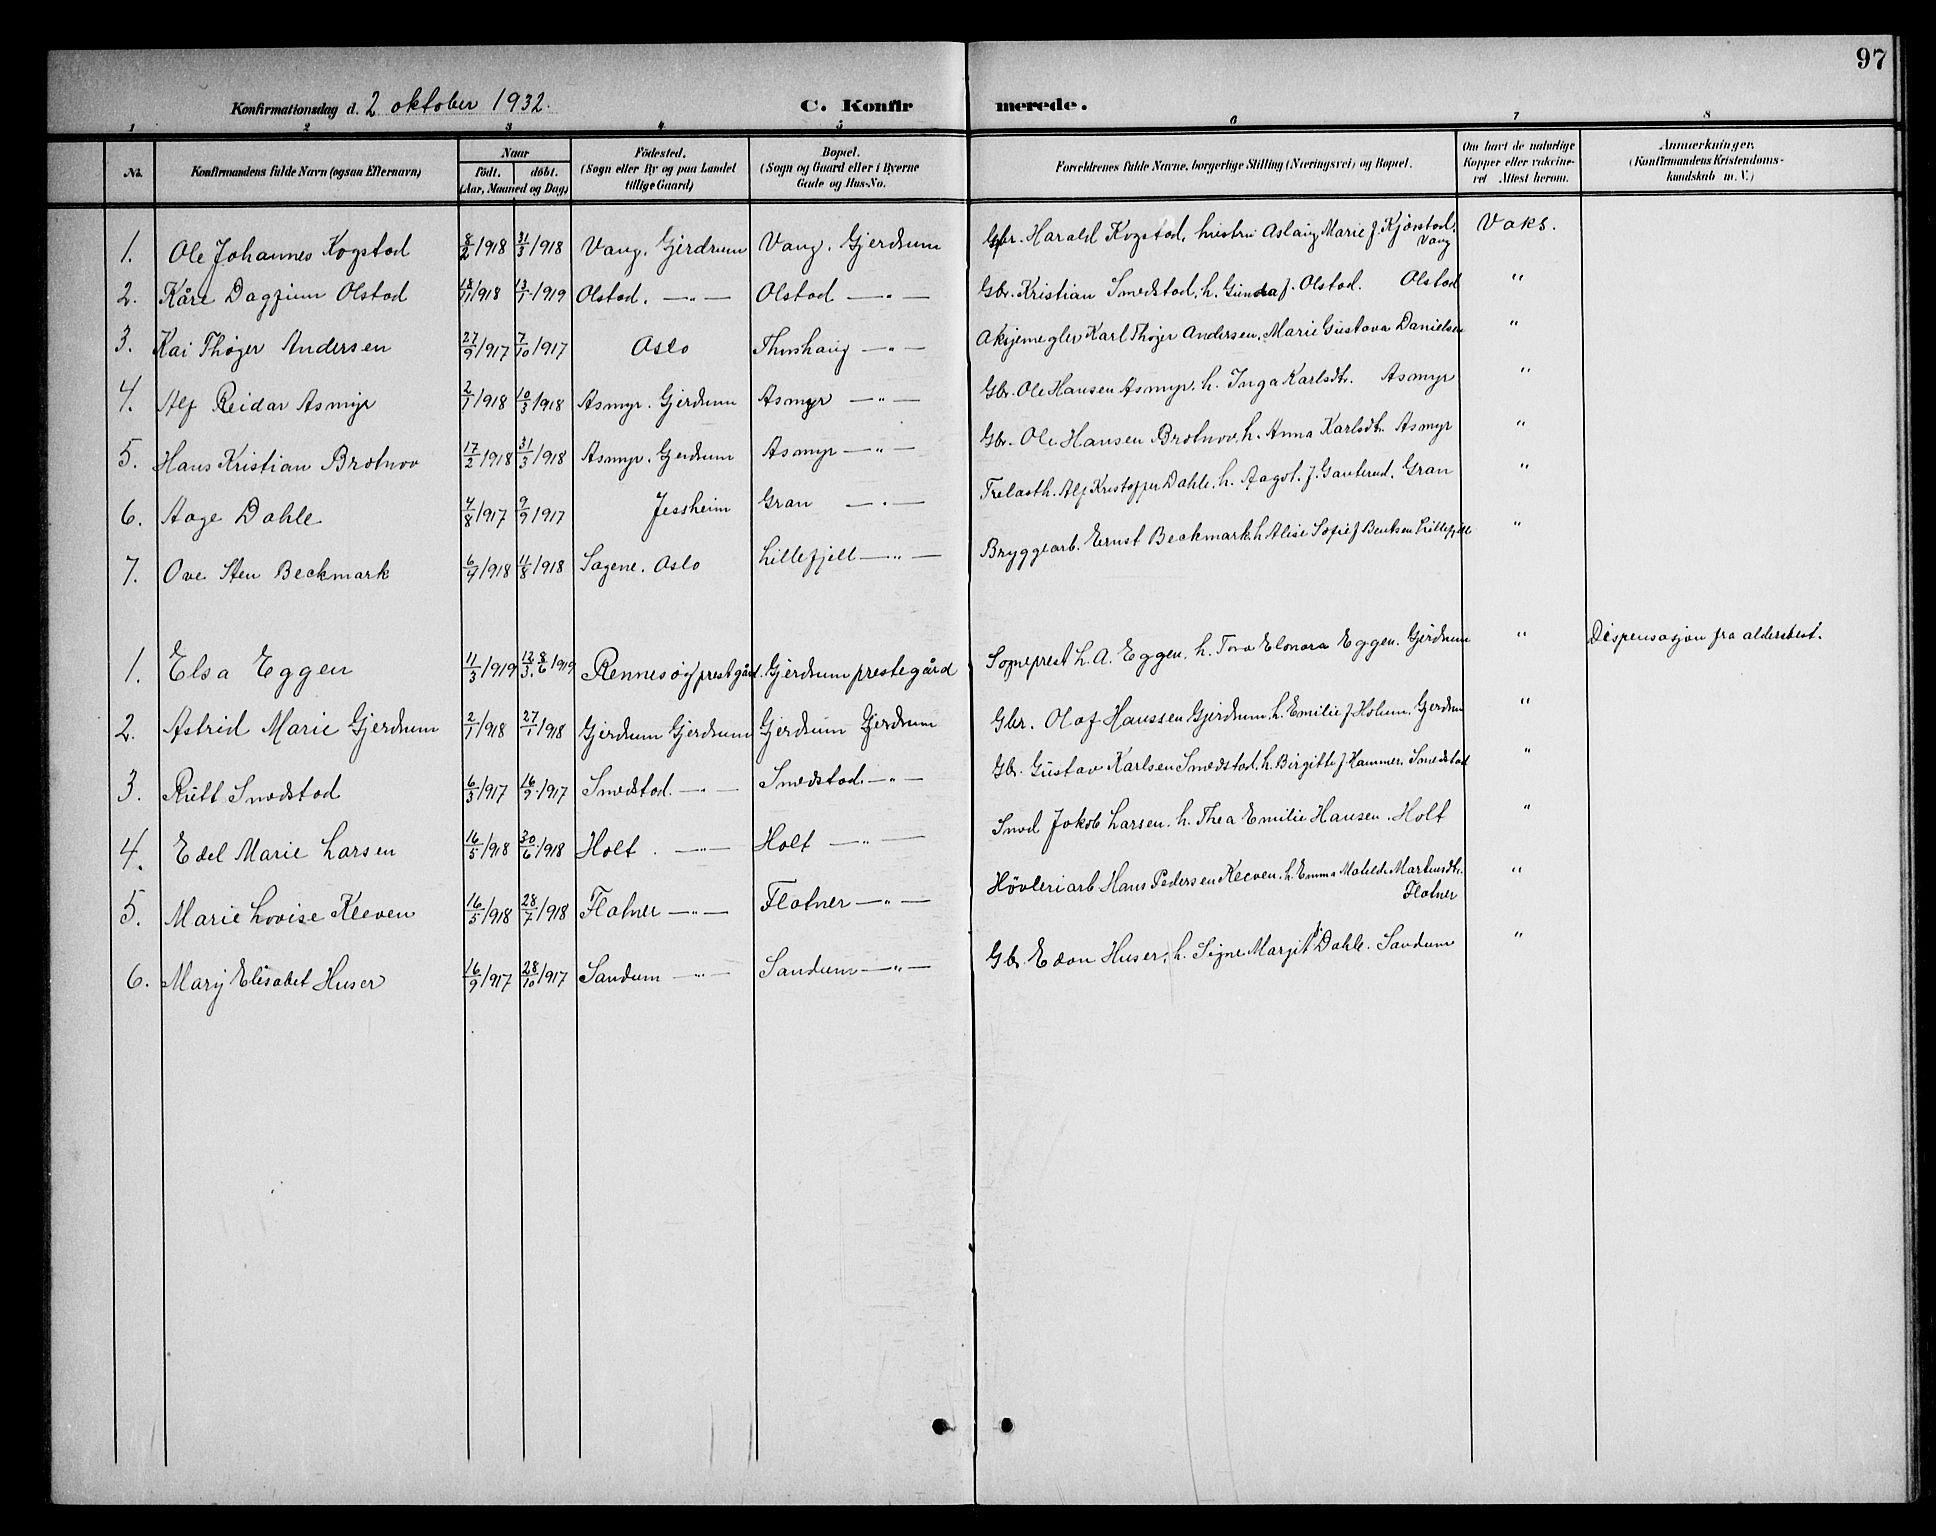 97
Konfirmationsdag d. 2 oktober 1932. C. Konfir merede.
1 2 3 4 5 6 7 8
No. Konfirmandens fulde Navn (ogsaa Efternavn) Naar født. døbt. (Aar, Maaned og Dag) Födested. (Sogn eller By og paa Landet tillige Gaard) Bopæl. (Sogn og Gaard eller i Byerne Gade og Hus-No. Forældrenes fulde Navne, borgerlige Stilling (Næringsvei) og Bopæl. Om havt de naturlige Kopper eller vakcineret Attest herom. Anmærkninger. (Konfirmandens Kristendomskundskab m. V.)
1. Ole Johannes Kogstad 8/2 1918 31/3 1918 Vang, Gjerdrum Vang, Gjerdrum Gbr. Harald Kogstad, hustru Aslaug Marie f. Kjöstad, Vang Vaks.
2. Kåre Dagfinn Olstad 18/11 1918 13/1 1919 Olstad. —"— Olstad —"— Gbr. Kristian Smedstad, h. Gunda f. Olstad. Olstad "
3. Kai Thøger Andersen 27/9 1917 7/10 1917 Oslo Thushaug —"— Aksjemegler Karl Thøger Andersen, Marie Gustava Danielsen "
4. Alf Reidar Asmyr 2/1 1918 10/3 1918 Asmyr. Gjerdrum Asmyr —"— Gbr. Ole Hansen Asmyr, h. Inga Karlsdtr. Asmyr "
5. Hans Kristian Brotnov 17/2 1918 31/3 1918 Asmyr, Gjerdrum Asmyr —"— Gbr. Ole Hansen Brotnov, h. Anna Karlsdtr. Asmyr "
6. Aage Dahle 4/8 1917 9/9 1917 Jessheim Gran —"— Trelasth. Alf Kristoffer Dahle, h. Aagot. f. Gauterud, Gran "
7. Ove Sten Beckmark 6/4 1918 11/8 1918 Sagene. Oslo Lillefjell —"— Bryggearb. Ernst Beckmark h. Alise Sofie f Bentsen Lillefjell "
1. Elsa Eggen 11/3 1919 12/3. 8/6 1919 Rennesøy prestgård. Gjerdrum prestegård Sogneprest L. A. Eggen, h. Tora Elonora Eggen. Gjerdrum " Dispensasjon fra aldersbest.
2. Astrid Marie Gjerdrum 2/1 1918 27/1 1918 Gjerdrum Gjerdrum Gjerdrum Gjerdrum Gbr. Olaf Hanssen Gjerdrum, h. Emilie f Holum, Gjerdrum "
3. Rutt Smedstad 6/3 1917 16/9 1917 Smedstad. —"— Smedstad. —"— Gbr. Gustav Karlsen Smedstad, h. Birgitte f Hammer. Smedstad "
4. Edel Marie Larsen 16/5 1918 30/6 1918 Holt. —"— Holt —"— Smed Jakob Larsen, h. Thea Emilie Hansen. Holt "
5. Marie Lovise Keeven 16/5 1918 28/7 1918 Flatner —"— Flatner —"— Høvleriarb Hans Pedersen Keeven, h. Emma Matilde Martinsdtr. Flatner "
6. Mary Elisabet Huser 16/9 1917 28/10 1917 Sandum —"— Sandum —"— Gbr. Edon Huser, h. Signe Margit f. Dahle. Sandum "